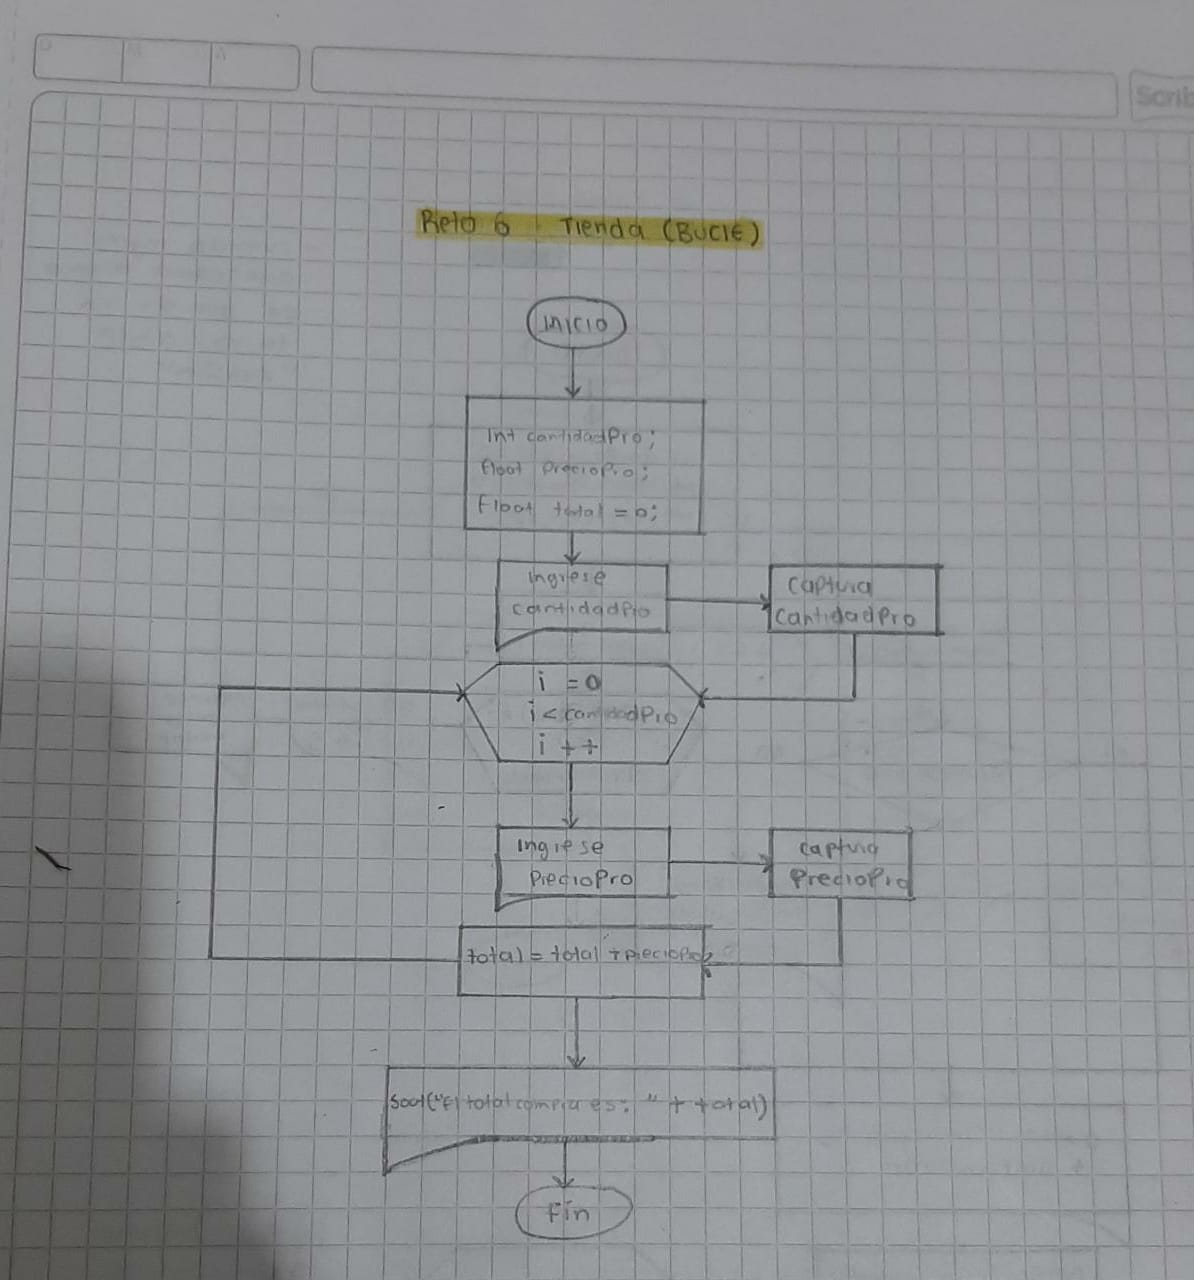 D M A
Scrib
Reto 6 Tienda (BUCLE)
Inicio
Int cantidadPro;
float precioPro;
Float total = 0;
Ingrese
cantidadPro
Captura
CantidadPro
i = 0
i < cantidadPro
i ++
Ingrese
PrecioPro
captura
PrecioPro
total = total + precioPro;
Sout("El total compra es: " + total)
Fin